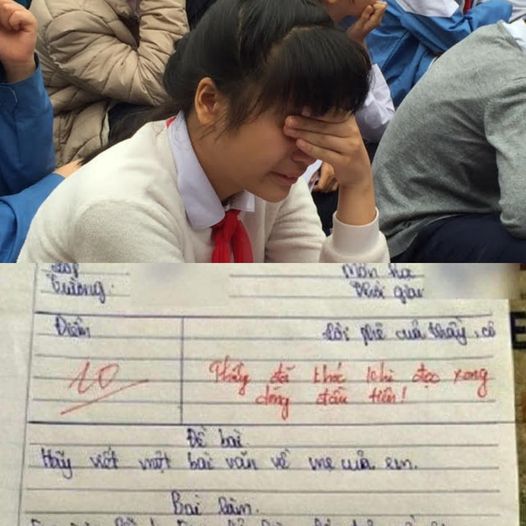 Lớp
Trường:
Môn học
Thời gian
Điểm
Lời phê của thầy, cô
10
Thầy đã khóc khi đọc xong
dòng đầu tiên!
Đề bài
Hãy viết một bài văn về mẹ của em.
Bài làm.